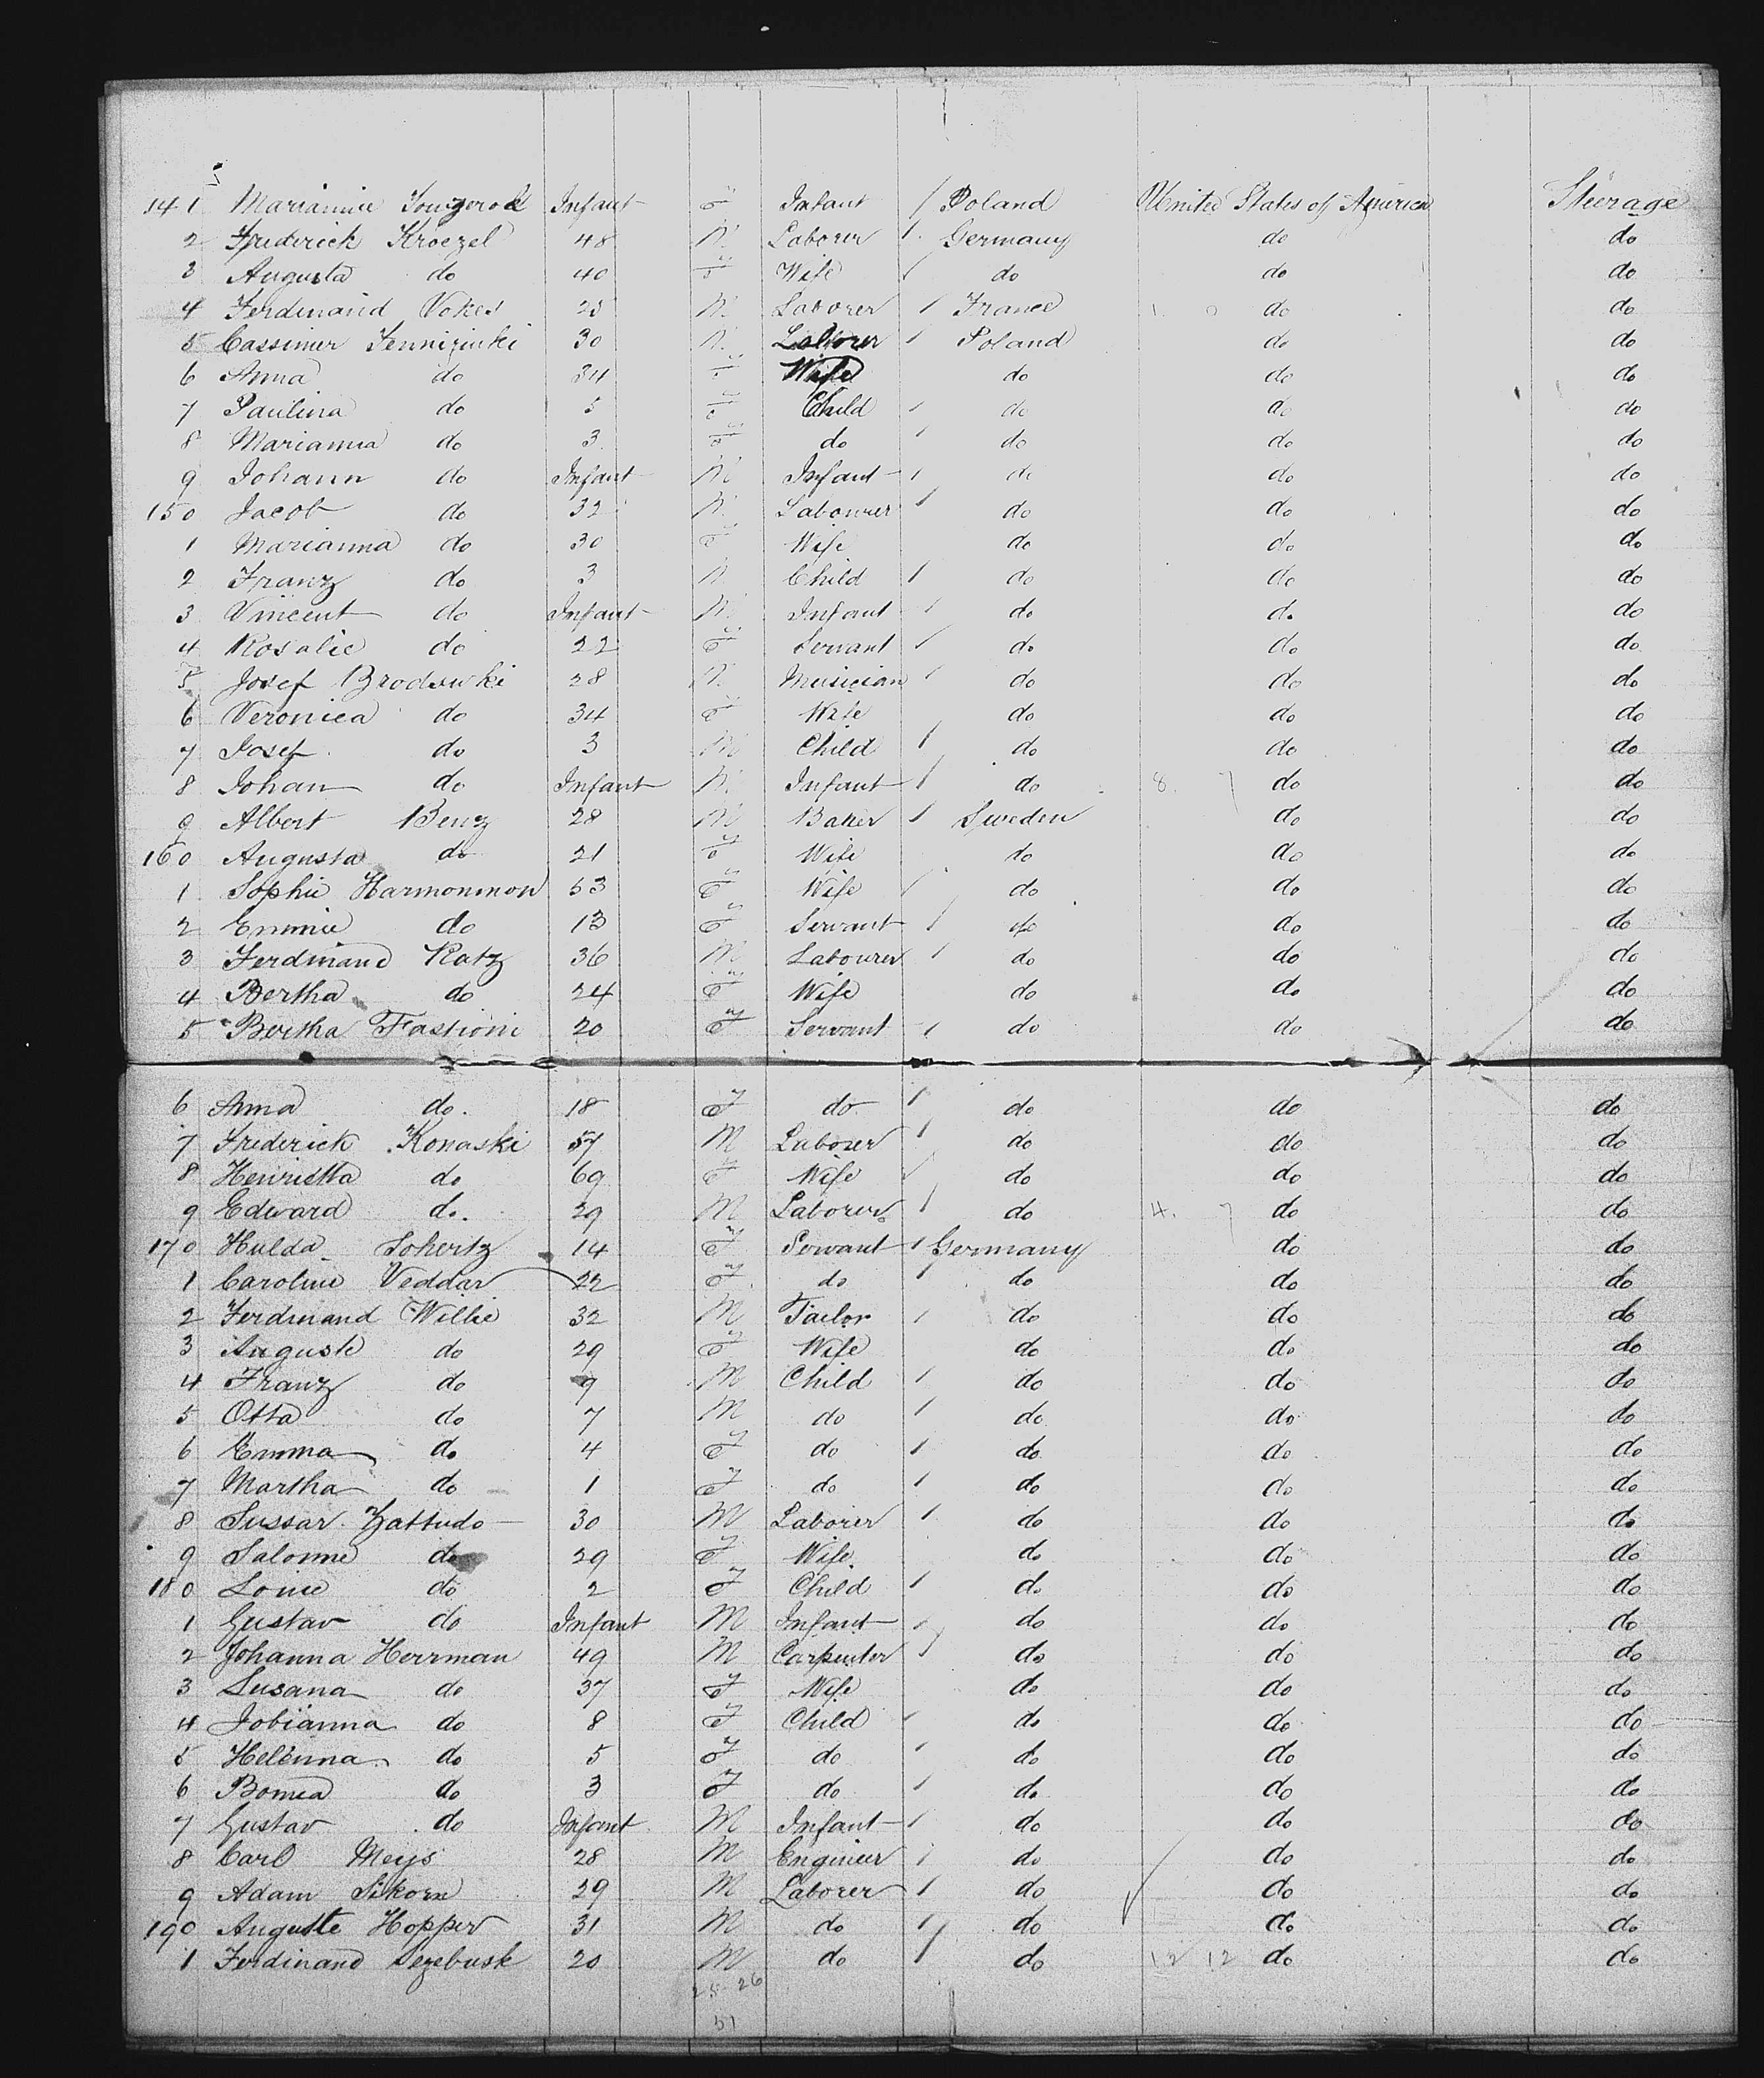 141 Marianna Infant F Infant / Poland United States of America Steerage
2 Frederick Kroezel 48 M Laborer / Germany do do
3 Augusta do 40 F Wife / do do do
4 Ferdinand Vokes M Laborer / France do do
5 Cassimer 30 M Laborer / Poland do do
6 Anna do 34 F Wife do do do
7 Paulina do 5 F Child / do do do
8 Marianna do 3 F do / do do do
9 Johann do Infant M Infant / do do do
150 Jacob do 32 M Labourer / do do do
1 Marianna do 30 F Wife do do do
2 Franz do 3 M Child / do do do
3 Vincent do Infant M Infant / do do do
4 Rosalie do 22 F Servant / do do do
5 Josef Brodowski 28 M Musician / do do do
6 Veronica do 34 F Wife do do do
7 Josef do 3 M Child / do do do
8 Johan do Infant M Infant / do 8. 7 do do
9 Albert Benz 28 M Baker / Sweden do do
160 Augusta do 21 F Wife do do do
1 Sophie Harmonmon 53 F Wife / do do do
2 Emmie do 13 F Servant / do do do
3 Ferdinand Ratz 36 M Labourer / do do do
4 Bertha do 24 F Wife do do do
5 Bertha Fastioni 20 F Servant / do do do
6 Anna do. 18 F do / do do do
7 Frederick Konaski 57 M Laborer / do do do
8 Henrietta do 69 F Wife / do do do
9 Edward do. 29 M Laborer / do 4. 7 do do
170 Hulda Sohertz 14 F Servant / Germany do do
1 Caroline Veddar 22 F do / do do do
2 Ferdinand Willie 32 M Tailor / do do do
3 Auguste do 29 F Wife do do do
4 Franz do 9 M Child / do do do
5 Otta do 7 M do / do do do
6 Emma do 4 F do / do do do
7 Martha do 1 F do / do do do
8 Sussar Zattudo 30 M Laborer / do do do
9 Salome do 29 F Wife do do do
180 Louie do 2 F Child / do do do
1 Gustav do Infant M Infant / do do do
2 Johanna Herrman 49 M Carpenter / do do do
3 Susana do 37 F Wife do do do
4 Jobianna do 8 F Child / do do do
5 Helenna do 5 F do / do do do
6 do 3 F do / do do do
7 Gustav do Infant M Infant / do do do
8 Carl Meys 28 M Engineer / do do do
9 Adam Sikorn 29 M Laborer / do do do
190 Auguste Hopper 31 M do / do do do
1 Ferdinand 20 M do / do 12 12 do do
25-26
51